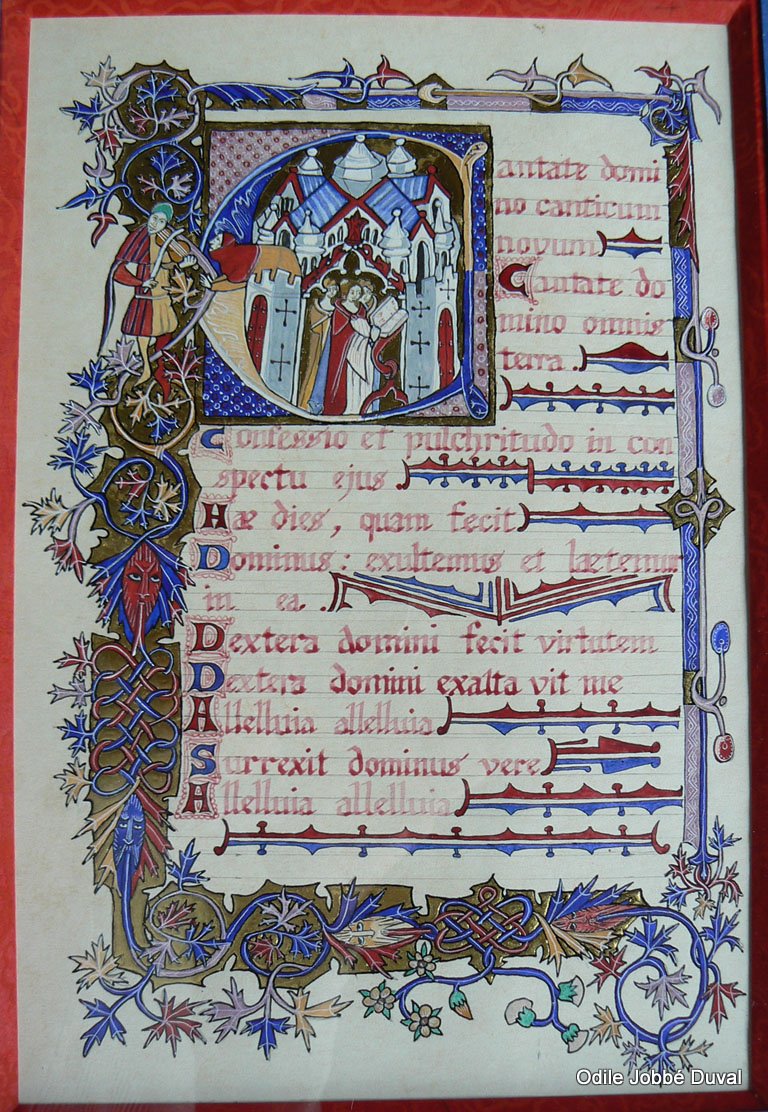 Cantate domi
no canticum
novum
Cantate do
mino omnis
terra.
Confessio et pulchritudo in con
spectu ejus
Hæ dies, quam fecit
Dominus: exultemus et lætemur
in ea.
Dextera domini fecit virtutem
Dextera domini exalta vit me
Allelluia allelluia
Surrexit dominus vere
Allelluia allelluia
Odile Jobbé Duval